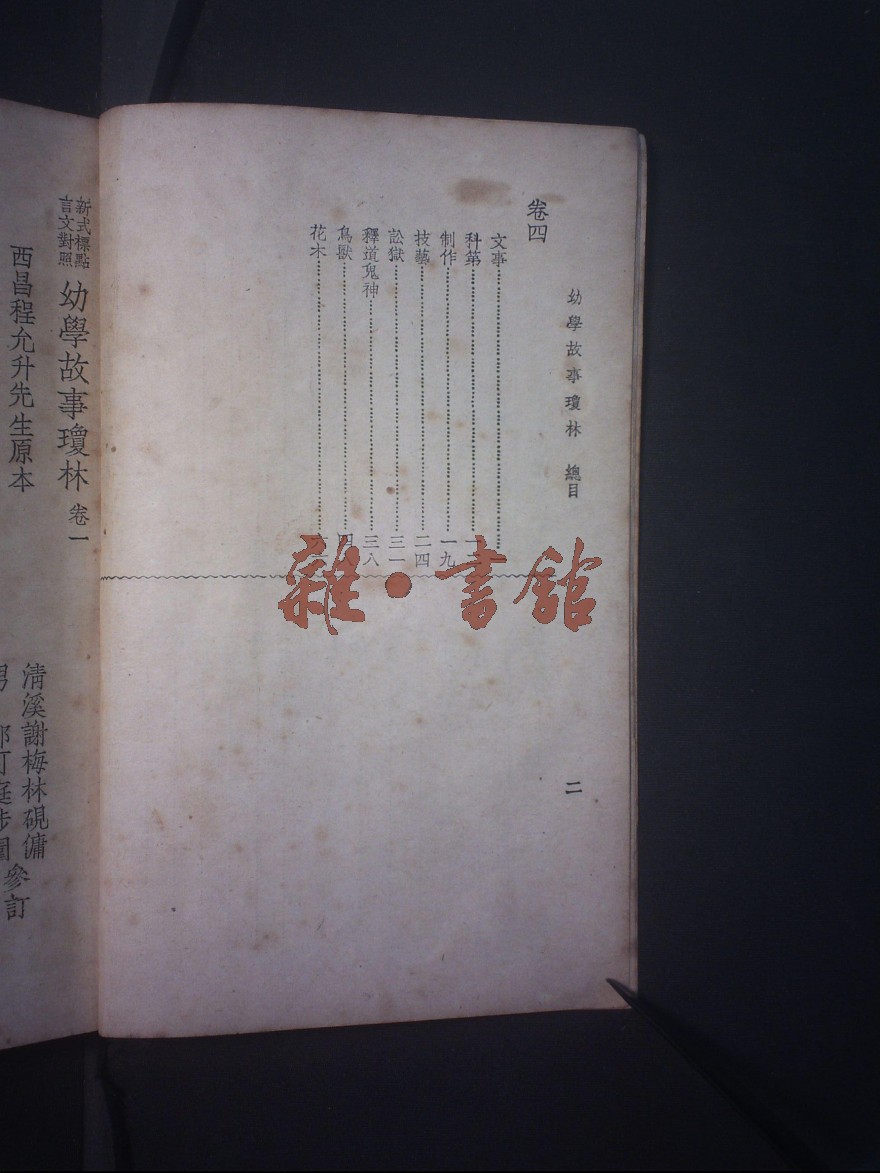 幼學故事瓊林 總目
二
卷四
文事
科第
制作 一九
技藝 二四
訟獄 三一
釋道鬼神 三八
鳥獸
花木
雜·書館
新式標點
言文對照
幼學故事瓊林 卷一
西昌程允升先生原本
清溪謝梅林硯傭
參訂